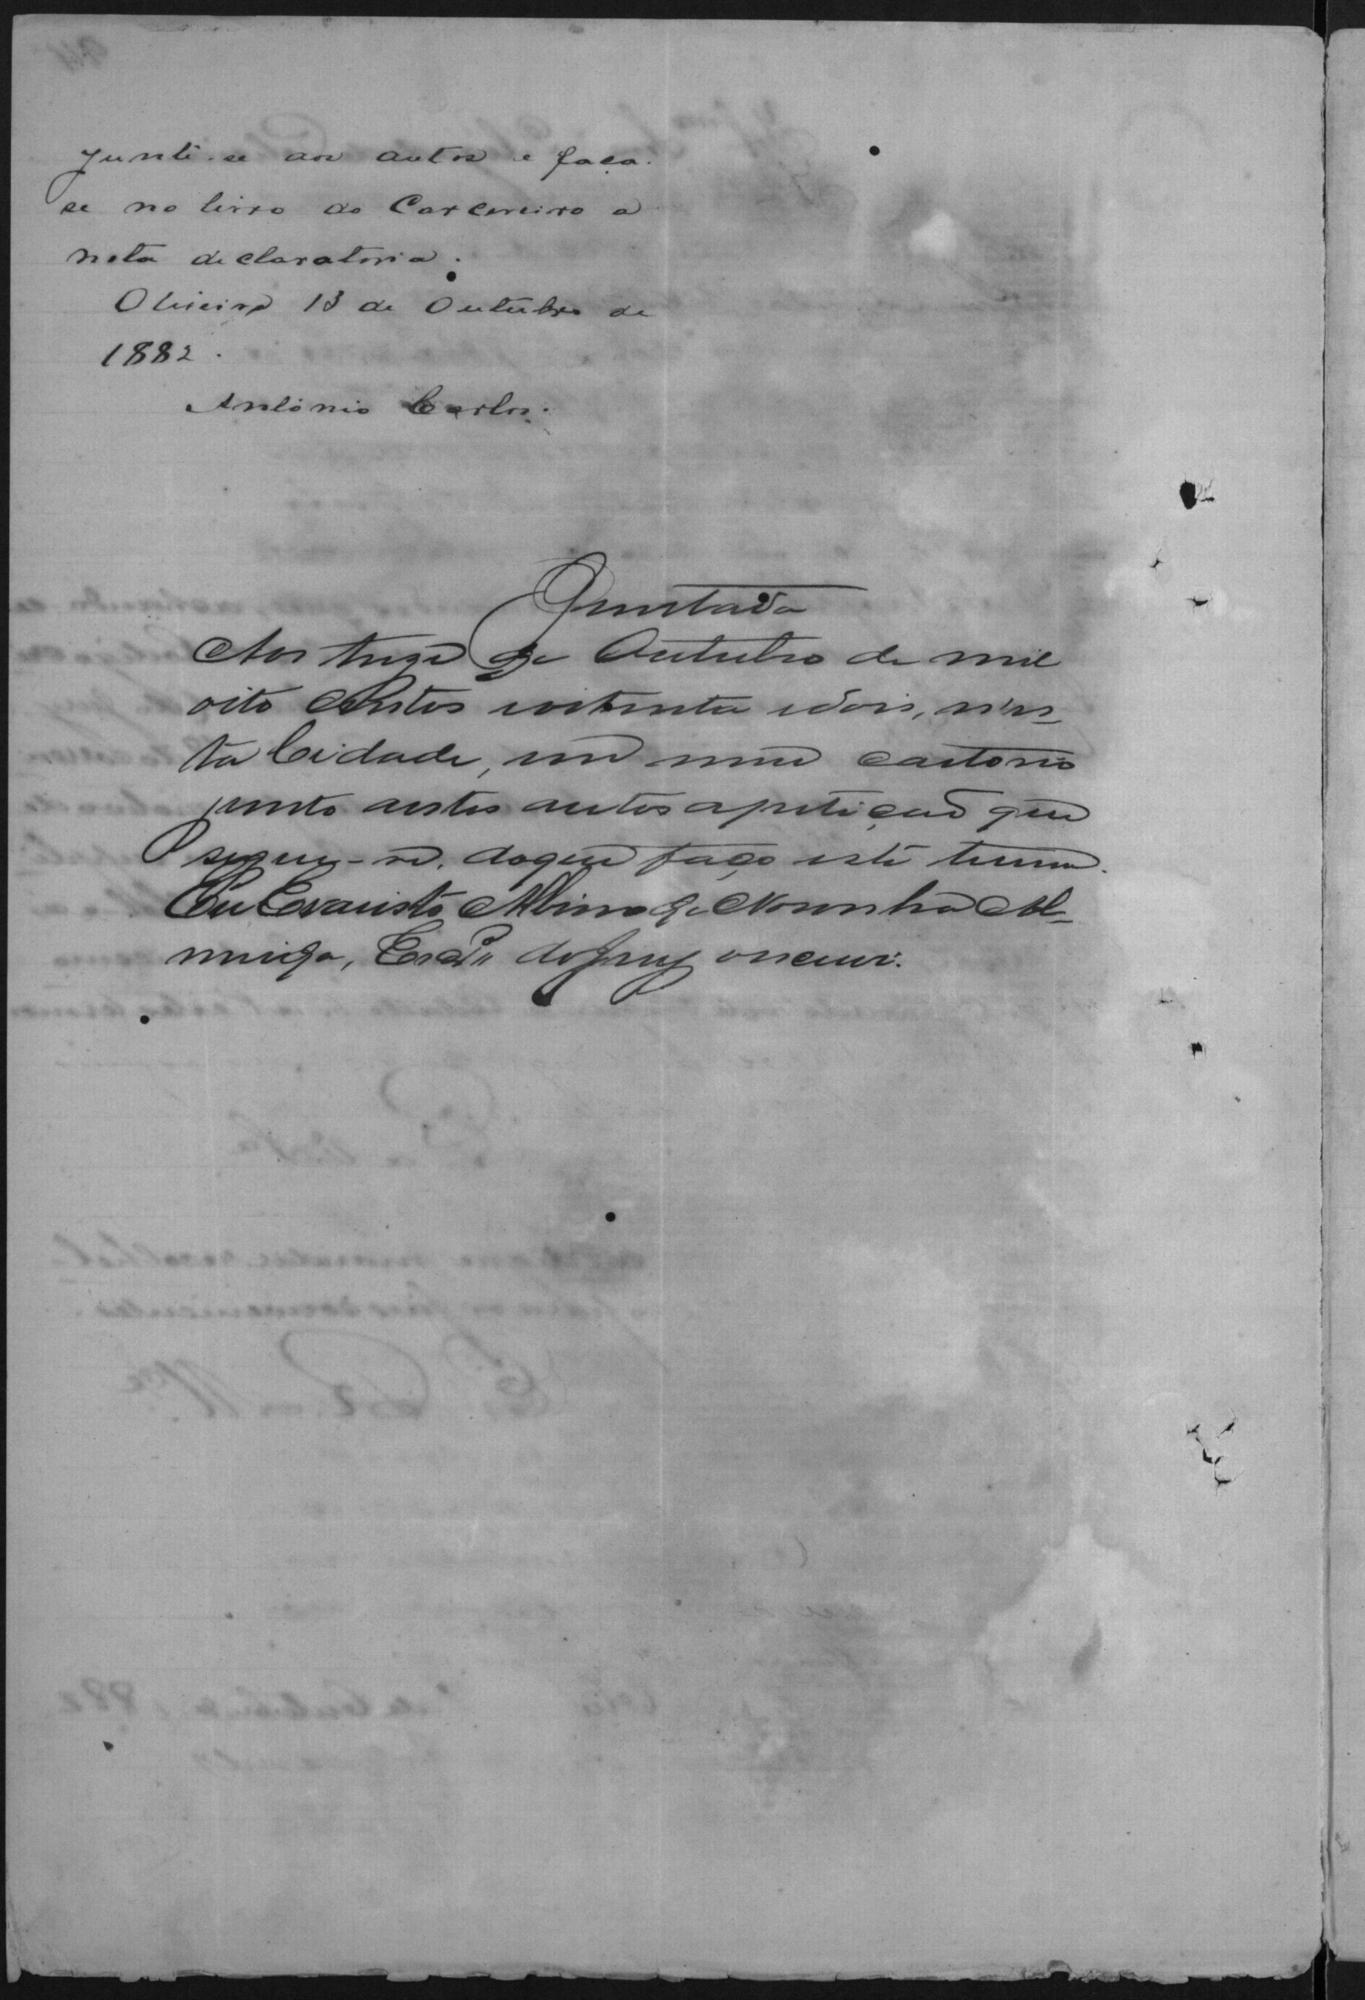 Junte-se aos autos e faça-
se no livro do Carcereiro a
nota declaratoria.
Oliveira 13 de Outubro de
1882.
Antonio Carlos.
Juntada
Aos treze de Outubro de mil
oito centos eoitenta edois, n'es-
ta Cidade, em meu cartorio
junto aestes autos apetição que
segue-se, doque faço este termo.
Eu Evaristo Albino de Noronha Al-
meida, Escr.m do Jury oescrevi.